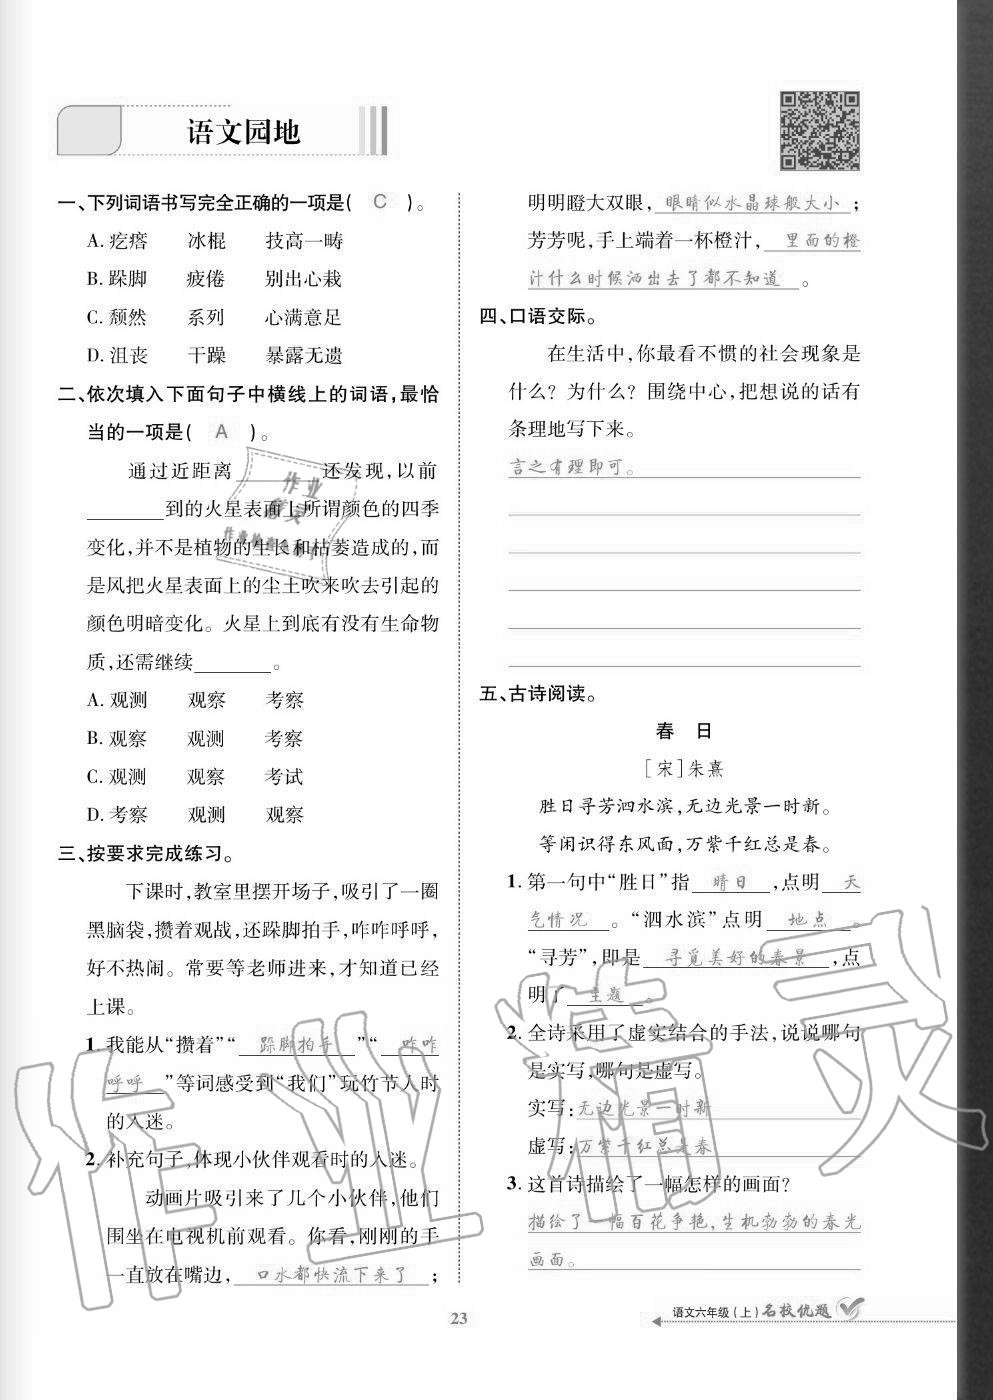 语文园地
一、下列词语书写完全正确的一项是( C )。
A. 疙瘩 冰棍 技高一畴
B. 跺脚 疲倦 别出心栽
C. 颓然 系列 心满意足
D. 沮丧 干躁 暴露无遗
二、依次填入下面句子中横线上的词语,最恰
当的一项是( A )。
通过近距离________还发现,以前
________到的火星表面上所谓颜色的四季
变化,并不是植物的生长和枯萎造成的,而
是风把火星表面上的尘土吹来吹去引起的
颜色明暗变化。火星上到底有没有生命物
质,还需继续________。
A. 观测 观察 考察
B. 观察 观测 考察
C. 观测 观察 考试
D. 考察 观测 观察
三、按要求完成练习。
下课时,教室里摆开场子,吸引了一圈
黑脑袋,攒着观战,还跺脚拍手,咋咋呼呼,
好不热闹。常要等老师进来,才知道已经
上课。
1. 我能从“攒着”“ 跺脚拍手 ”“ 咋咋
呼呼 ”等词感受到“我们”玩竹节人时
的入迷。
2. 补充句子,体现小伙伴观看时的入迷。
动画片吸引来了几个小伙伴,他们
围坐在电视机前观看。你看,刚刚的手
一直放在嘴边, 口水都快流下来了 ;
明明瞪大双眼, 眼睛似水晶球般大小 ;
芳芳呢,手上端着一杯橙汁, 里面的橙
汁什么时候洒出去了都不知道 。
四、口语交际。
在生活中,你最看不惯的社会现象是
什么?为什么?围绕中心,把想说的话有
条理地写下来。
言之有理即可。
五、古诗阅读。
春 日
[宋]朱熹
胜日寻芳泗水滨,无边光景一时新。
等闲识得东风面,万紫千红总是春。
1. 第一句中“胜日”指 晴日 ,点明 天
气情况 。“泗水滨”点明 地点 。
“寻芳”,即是 寻觅美好的春景 ,点
明了 主题 。
2. 全诗采用了虚实结合的手法,说说哪句
是实写,哪句是虚写。
实写:无边光景一时新
虚写:万紫千红总是春
3. 这首诗描绘了一幅怎样的画面?
描绘了一幅百花争艳,生机勃勃的春光
画面。
23
语文六年级(上)名校优题
作业精灵